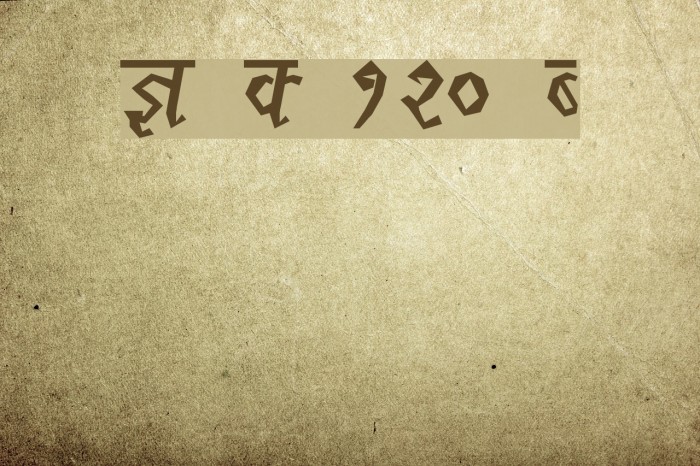 ज्ञ क १२०